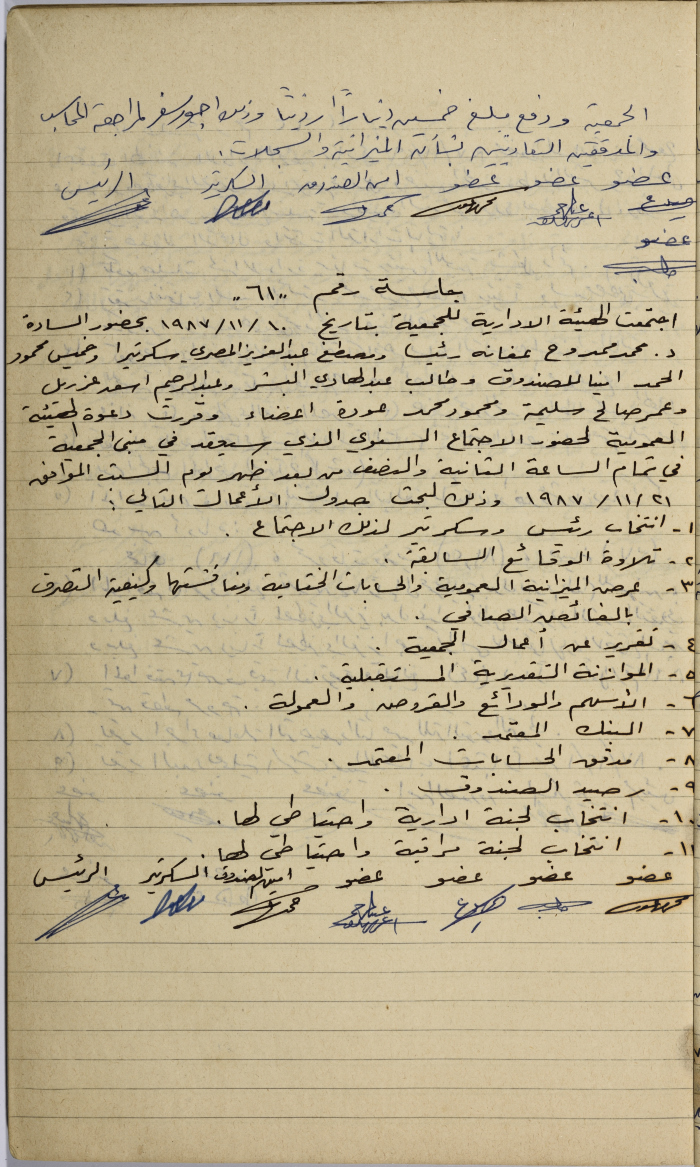 الجمعية ودفع مبلغ خمسين ديناراً اردنياً وذلك اجور سفر لمراجعة المحاسب
والمدققين التعاونيين بشأن الميزانية والسجلات.
عضو عضو عضو امين الصندوق السكرتير الرئيس
عضو
جلسة رقم "٦١"
اجتمعت الهيئة الادارية للجمعية بتاريخ ١٩٨٧/١١/١٠ بحضور السادة
د. محمد ممدوح عفانه رئيسا ومصطفى عبد العزيز المصري سكرتيرا وخميس محمود
الحمد امينا للصندوق وطالب عبد الهادي البشر وعبد الرحيم اسعد عزريل
وعمر صالح سليمة ومحمود محمد عودة اعضاء وقررت دعوة الهيئة
العمومية لحضور الاجتماع السنوي الذي سيعقد في مبنى الجمعية
في تمام الساعة الثانية والنصف من بعد ظهر يوم السبت الموافق
١٩٨٧/١١/٢١ وذلك لبحث جدول الأعمال التالي :
١- انتخاب رئيس وسكرتير لذلك الاجتماع .
٢- تلاوة الوقائع السابقة .
٣- عرض الميزانية العمومية والحسابات الختامية ومناقشتها وكيفية التصرف
بالفائض الصافي .
٤- تقرير عن أعمال الجمعية .
٥- الموازنة التقديرية المستقبلية .
٦- الأسهم والودائع والقروض والعمولة .
٧- البنك المعتمد .
٨- مدقق الحسابات المعتمد .
٩- رصيد الصندوق .
١٠- انتخاب لجنة ادارية واحتياطي لها .
١١- انتخاب لجنة مراقبة واحتياطي لها .
عضو عضو عضو عضو امين الصندوق السكرتير الرئيس